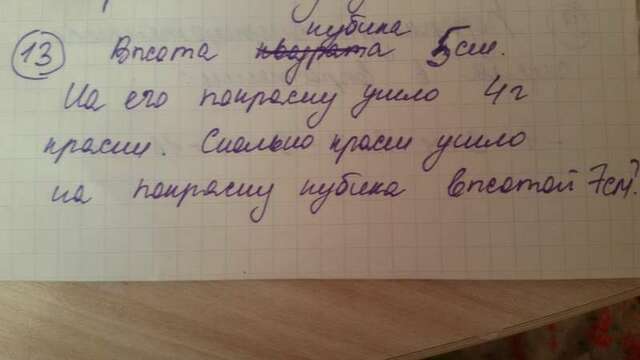 кубика
13 Высота квадрата 5см.
На его покраску ушло 4г
краски. Сколько краски ушло
на покраску кубика высотой 7см?